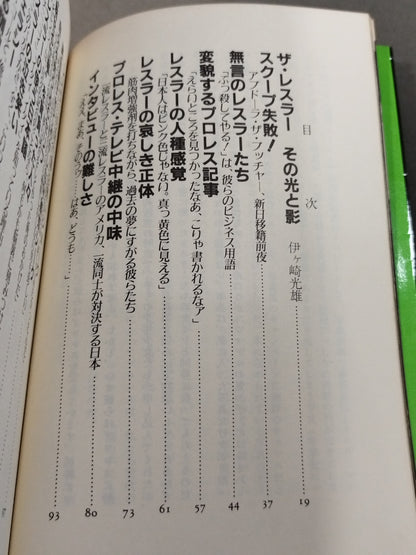 目次
ザ・レスラー その光と影 伊ヶ崎光雄 19
スクープ失敗!
アブドーラ・ザ・ブッチャー、新日移籍前夜 37
無言のレスラーたち
「ぶっ殺してやる!」は、彼らのビジネス用語 44
変貌するプロレス記事
「えらいところを見つかったなあ、こりゃ書かれるなァ」 57
レスラーの人種感覚
「日本人はピンク色じゃない。真っ黄色に見える」 61
レスラーの哀しき正体
筋肉増強剤を打ちながら、過去の夢にすがる彼らたち 73
プロレス・テレビ中継の中味
一流レスラーと二流レスラーのアメリカ、一流同士が対決する日本 80
インタビューの難しさ
はあ、どうも…」 93